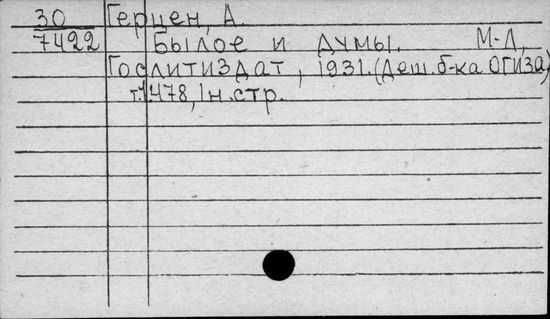 30 Герцен, А.
7422 Былое и думы. М-Л,
Гослитиздат, 1931. (Деш. б-ка ОГИЗа)
т.1. 478, 1 н. стр.